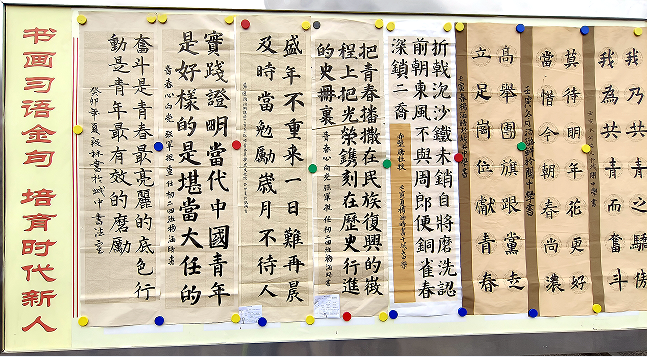 书画习语金句 培育时代新人
奮斗是青春最亮麗的底色行
動是青年最有效的磨勵
實踐證明當代中國青年
是好樣的是堪當大任的
盛年不重来一日難再晨
及時當勉勵嵗月不待人
把青春播撒在民族復興的徵
程上把光榮鐫刻在歷史行進
的史冊裏
折戟沉沙鐵未銷自將磨洗認
前朝東風不與周郎便銅雀春
深鎖二喬
高舉團旗跟黨走
立足崗位獻青春
莫待明年花更好
當惜今朝春尚濃
我乃共青之驕傍
我為共青而奮斗